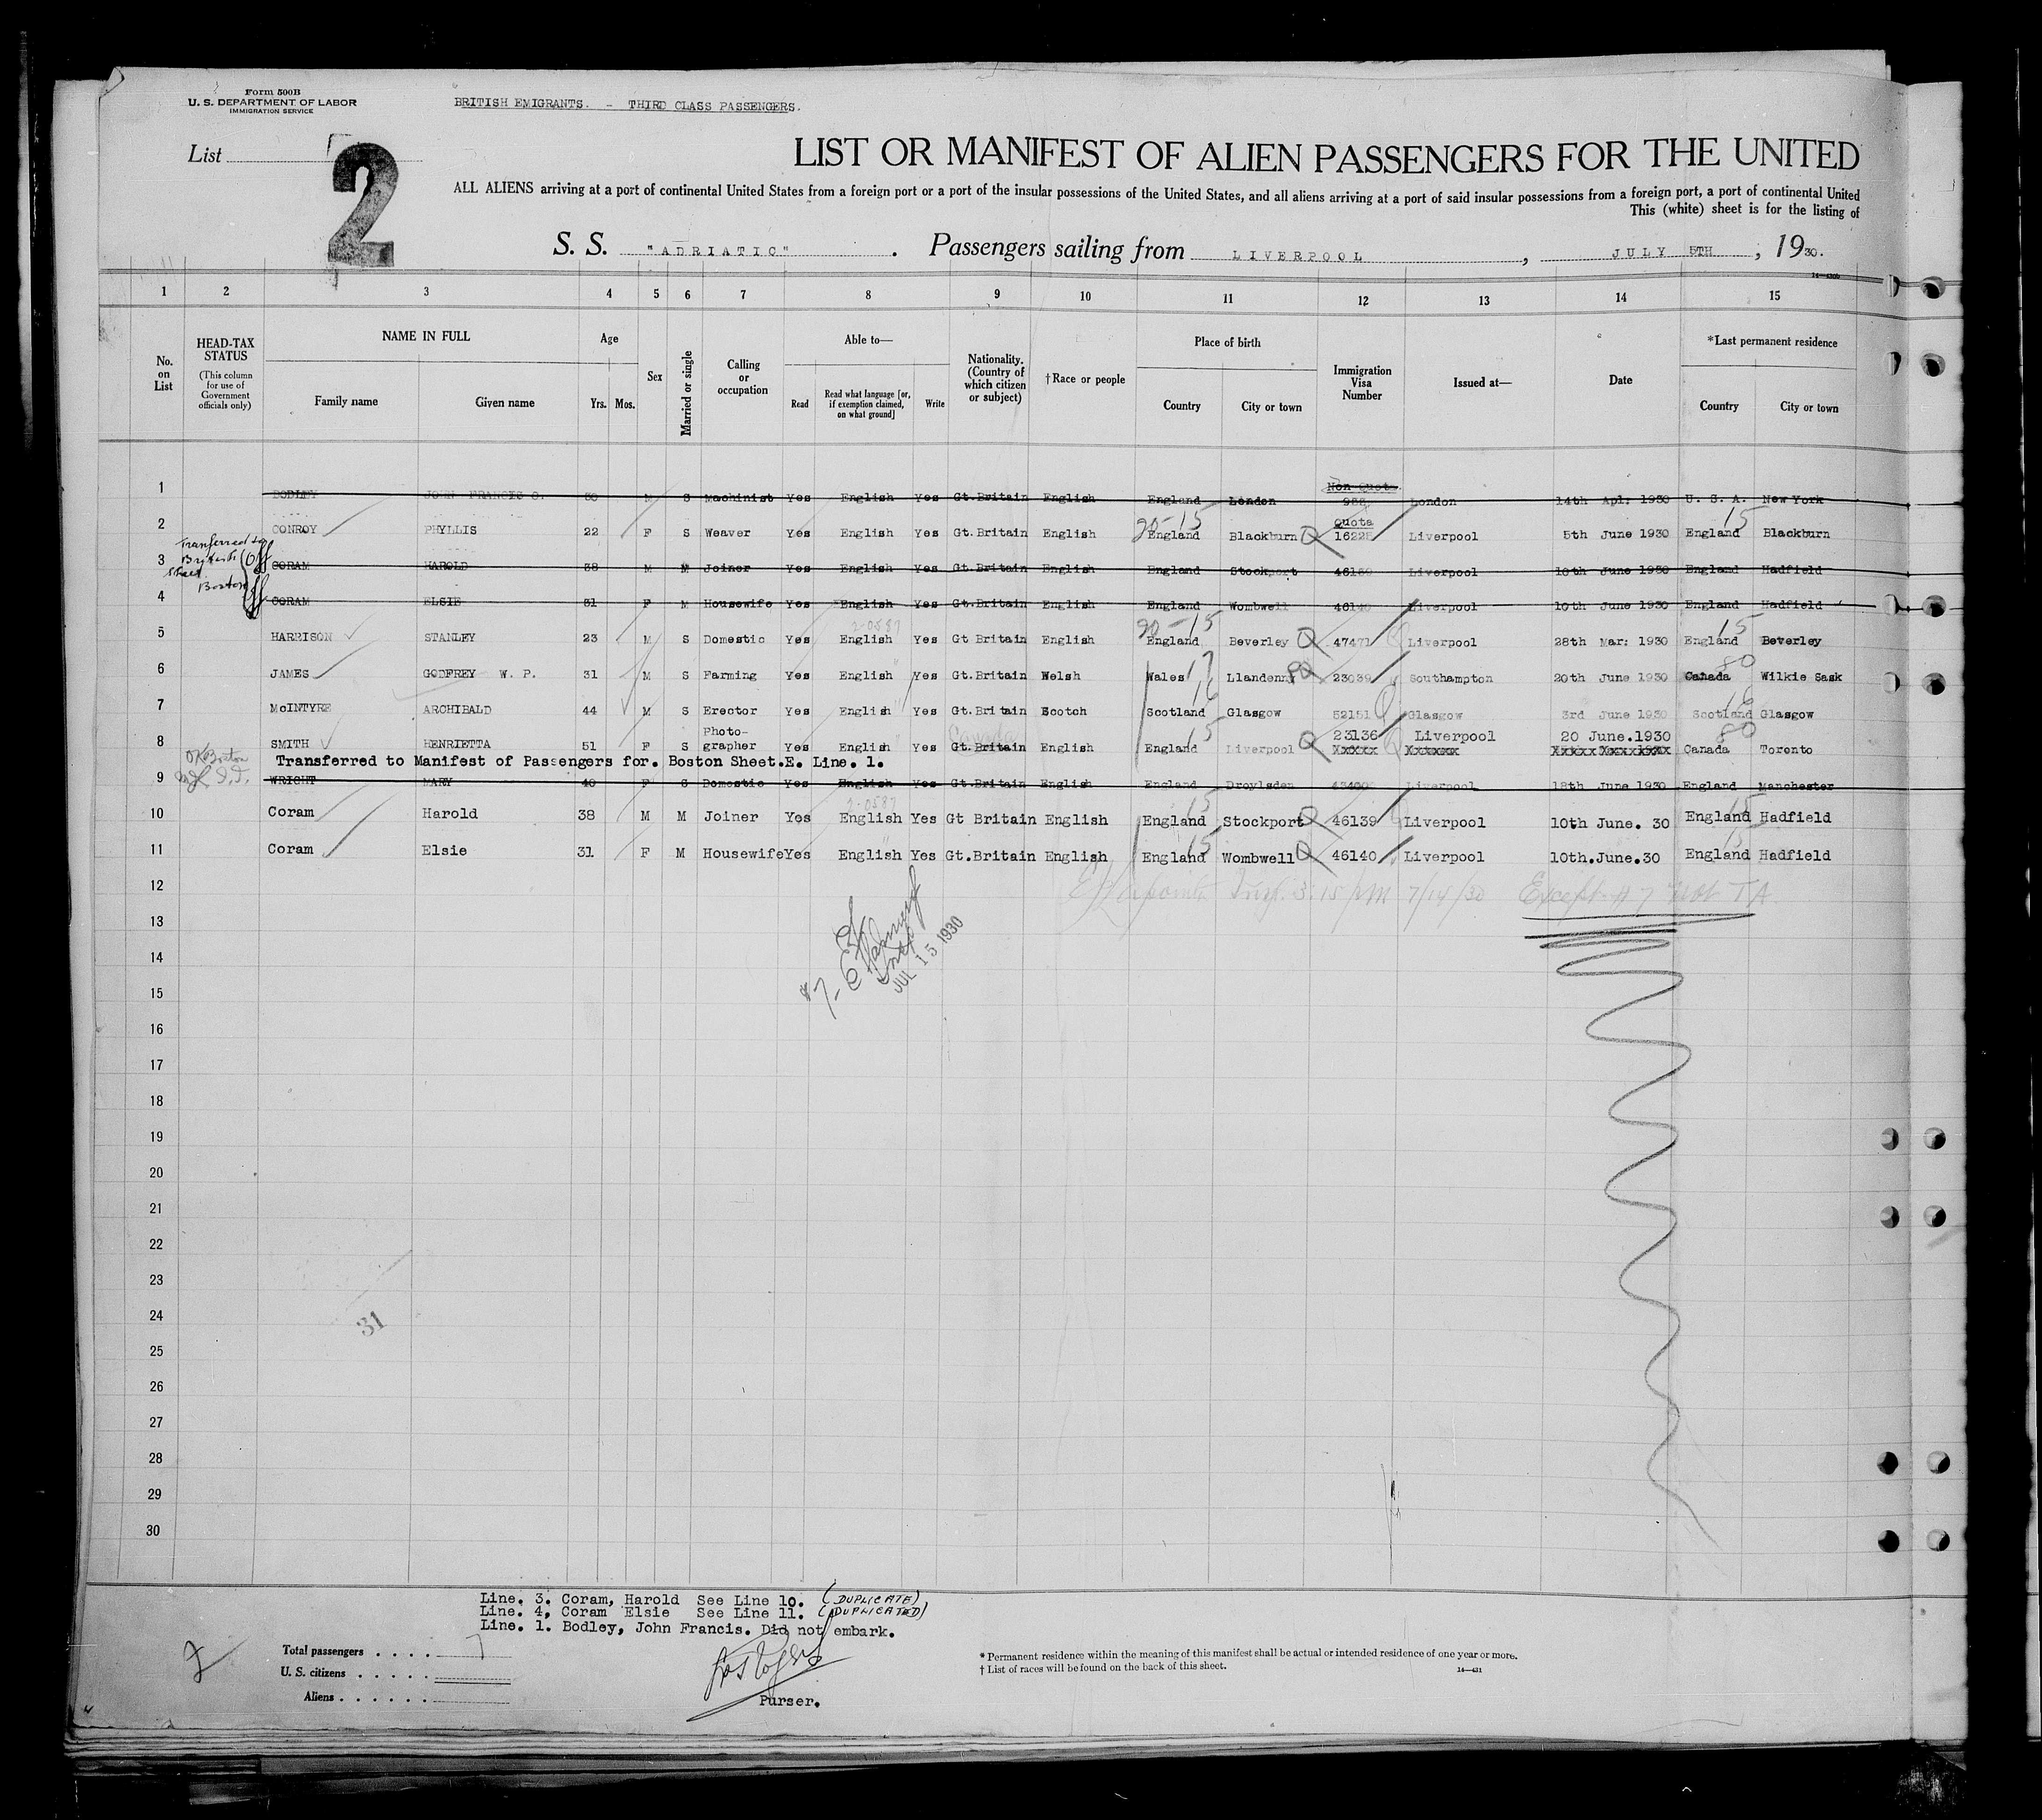 Form 500B
U. S. DEPARTMENT OF LABOR
IMMIGRATION SERVICE
BRITISH EMIGRANTS. - THIRD CLASS PASSENGERS.
List
2
LIST OR MANIFEST OF ALIEN PASSENGERS FOR THE UNITED
ALL ALIENS arriving at a port of continental United States from a foreign port or a port of the insular possessions of the United States, and all aliens arriving at a port of said insular possessions from a foreign port, a port of continental United
This (white) sheet is for the listing of
S. S. "ADRIATIC" . Passengers sailing from LIVERPOOL , JULY 5TH , 1930.
1 2 3 4 5 6 7 8 9 10 11 12 13 14 15
No. on List
HEAD-TAX STATUS (This column for use of Government officials only)
NAME IN FULL
Family name Given name
Age
Yrs. Mos.
Sex
Married or single
Calling or occupation
Able to—
Read Read what language [or, if exemption claimed, on what ground] Write
Nationality. (Country of which citizen or subject)
†Race or people
Place of birth
Country City or town
Immigration Visa Number
Issued at—
Date
*Last permanent residence
Country City or town
Non Quot.
1 BODLEY JOHN FRANCIS S. M S Machinist Yes English Yes Gt.Britain English England London London 14th Apl: 1930 U. S. A. New York
Quota
20-15 15
2 CONROY PHYLLIS 22 F S Weaver Yes English Yes Gt.Britain English England Blackburn Q Liverpool 5th June 1930 England Blackburn
Transferred to
British
Sheet
Boston
3 CORAM HAROLD 38 M M Joiner Yes English Yes Gt.Britain English England Stockport Liverpool 10th June 1930 England Hadfield
4 CORAM ELSIE 31 F M Housewife Yes English Yes Gt.Britain English England Wombwell Liverpool 10th June 1930 England Hadfield
2-0587 20-15 15
5 HARRISON STANLEY 23 M S Domestic Yes English Yes Gt Britain English England Beverley Q 47471 Liverpool 28th Mar: 1930 England Beverley
17 80
6 JAMES GODFREY W. P. 31 M S Farming Yes English Yes Gt.Britain Welsh Wales 23039 Southampton 20th June 1930 Canada Wilkie Sask
16 16
7 McINTYRE ARCHIBALD 44 M S Erector Yes English Yes Gt.Britain Scotch Scotland Glasgow 52151 Glasgow 3rd June 1930 Scotland Glasgow
Photo-
15 23136 Liverpool 20 June.1930 80
8 SMITH HENRIETTA 51 F S grapher Yes English Yes Gt.Britain English England Liverpool Q Canada Toronto
Transferred to Manifest of Passengers for. Boston Sheet.E. Line. 1.
9 WRIGHT MARY 40 F S Domestic Yes English Yes Gt.Britain English England Droylsden Liverpool 18th June 1930 England Manchester
2-0587 15 15
10 Coram Harold 38 M M Joiner Yes English Yes Gt Britain English England Stockport Q 46139 Liverpool 10th June. 30 England Hadfield
15 15
11 Coram Elsie 31 F M Housewife Yes English Yes Gt.Britain English England Wombwell Q 46140 Liverpool 10th.June.30 England Hadfield
12
3:15 PM 7/14/30 Except #7 not TA
13
JUL 15 1930
14
15
16
17
18
19
20
21
22
23
24
31
25
26
27
28
29
30
Line. 3. Coram, Harold See Line 10. (DUPLICATE)
Line. 4, Coram Elsie See Line 11. (DUPLICATED)
Line. 1. Bodley, John Francis. Did not embark.
Total passengers . . . . 7
U. S. citizens . . . . .
Aliens . . . . . .
Purser.
* Permanent residence within the meaning of this manifest shall be actual or intended residence of one year or more.
† List of races will be found on the back of this sheet.
14—431